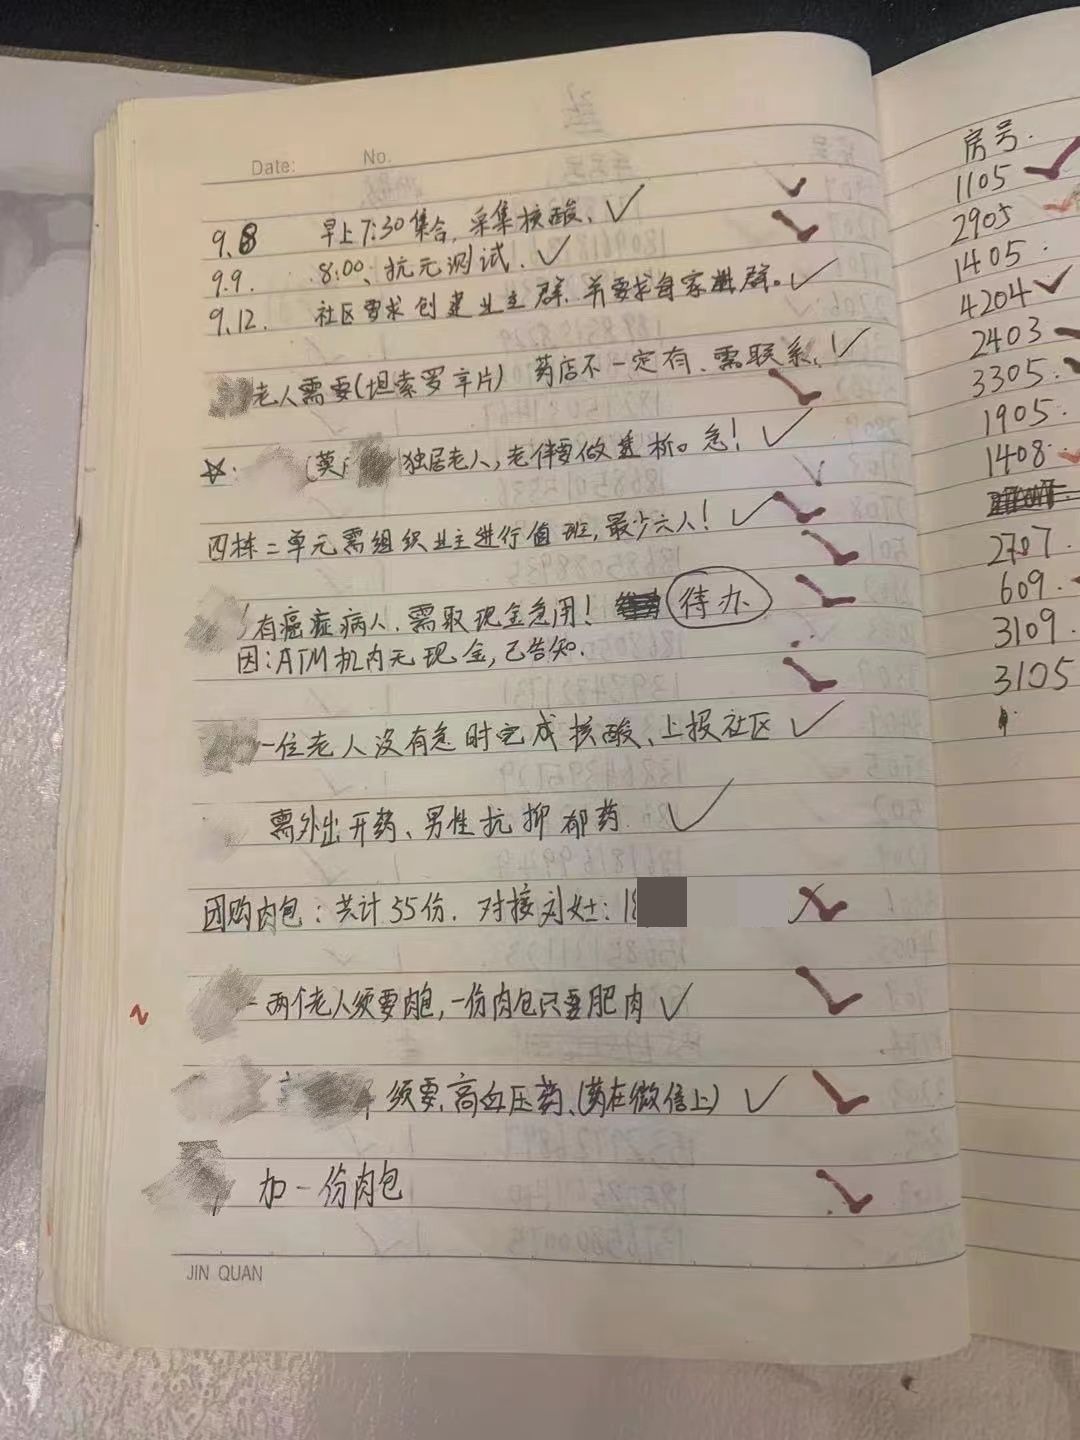 Date: No.
9.8 早上7:30集合，采集核酸、
9.9. 8:00、抗元测试.
9.12. 社区要求创建业主群.并要求自家进群。
老人需要(坦索罗辛片) 药店不一定有、需联系.
☆: (莫 独居老人,老伴要做透析。急!
四栋二单元需组织业主进行值班,最少六人!
有癌症病人.需取现金急用! 待办
因:ATM机内无现金,已告知.
一位老人没有急时完成核酸、上报社区
需外出开药、男性抗抑郁药
团购肉包:共计55份. 对接刘女士:18
两个老人须要肉包,一份肉包只要肥肉
须要.高血压药、(药在微信上)
加一份肉包
JIN QUAN
房号.
1105
2905
1405.
4204
2403
3305.
1905.
1408
2707.
609.
3109.
3105